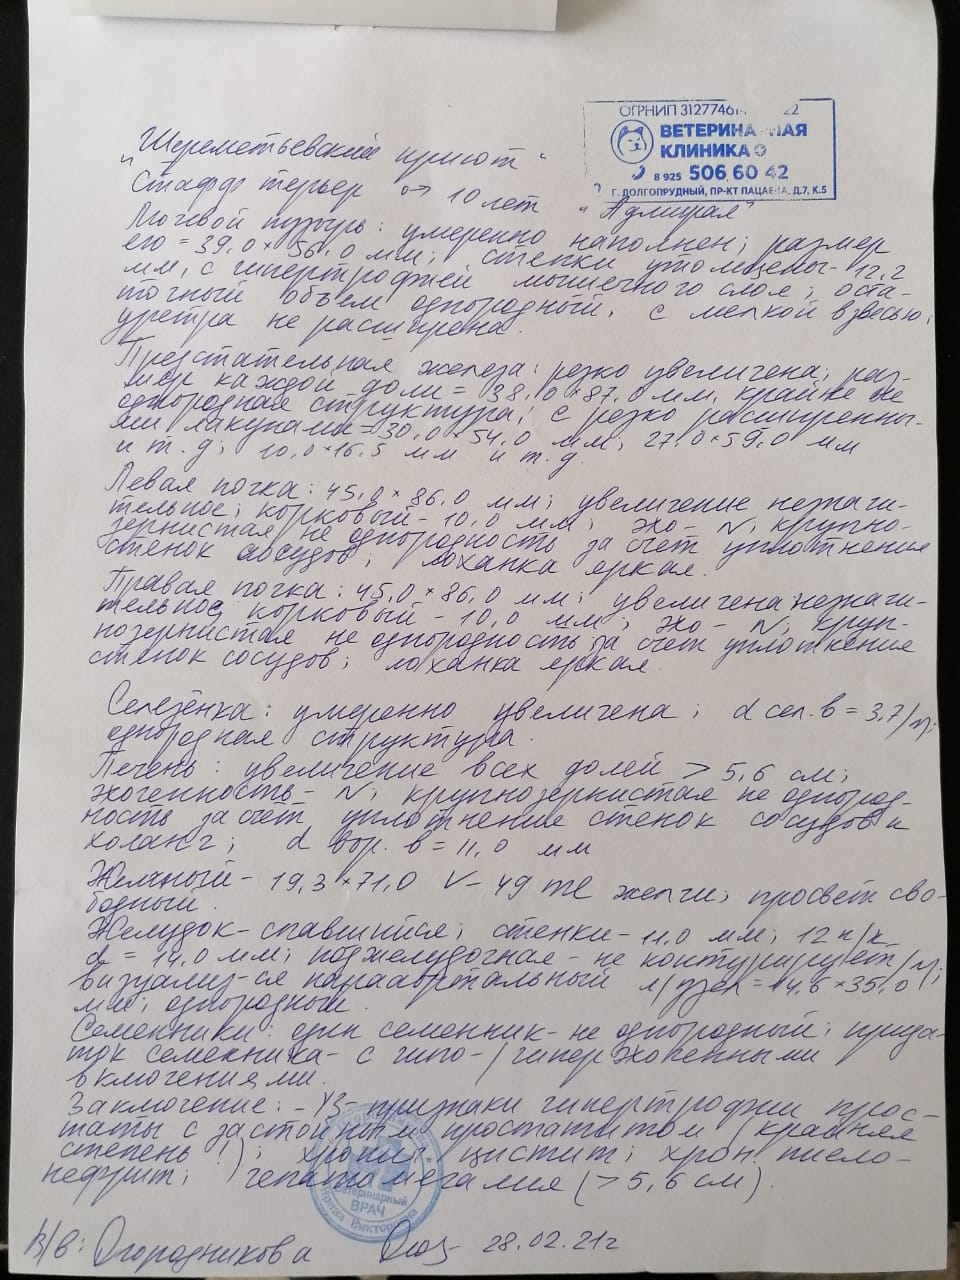 ОГРНИП 31277461 22
ВЕТЕРИНА НАЯ
КЛИНИКА
8 925 506 60 42
Г. ДОЛГОПРУДНЫЙ, ПР-КТ ПАЦАЕВА, Д.7, К.5
"Шереметьевский приют"
Стафф терьер 10 лет "Адмирал"
Мочевой пузырь: умеренно наполнен; размер
его = 39,0 × 56,0 мм; стенки утолщены - 12,2
мм, с гипертрофией мышечного слоя; оста-
точный объем однородный, с мелкой взвесью;
уретра не расширена.
Предстательная железа: резко увеличена; раз-
мер каждой доли = 38,0 × 87,0 мм, крайне не
однородная структура; с резко расширенны-
ми лакунами = 30,0 × 54,0 мм; 27,0 × 59,0 мм
и т.д; 10,0 × 16,5 мм и т.д.
Левая почка: 45,0 × 86,0 мм; увеличение незначи-
тельное; корковый - 10,0 мм; эхо - N; крупно-
зернистая не однородность за счет уплотнения
стенок сосудов; лоханка яркая.
Правая почка: 45,0 × 86,0 мм; увеличена незначи-
тельное; корковый - 10,0 мм; эхо - N; круп-
нозернистая не однородность за счет уплотнения
стенок сосудов; лоханка яркая.
Селезёнка: умеренно увеличена; d сел. в = 3,7 мм;
однородная структура.
Печень: увеличение всех долей > 5,6 см;
эхогенность - N; крупнозернистая не однород-
ность за счёт уплотнение стенок сосудов и
холанг; d вор. в = 11,0 мм
Желчный - 19,3 × 71,0 V - 49 те желчи; просвет сво-
бодный.
Желудок - спавшийся; стенки - 11,0 мм; 12 п/к
d = 14,0 мм; поджелудочная - не контурирует;
визуализ-ся парааортальный л/узел = 14,6 × 35,0
мм; однородный.
Семенники: один семенник - не однородный; прида-
ток семенника - с гипо-/гиперэхогенными
включениями.
Заключение: - УЗ-признаки гипертрофии прос-
таты с застойным простатитом (крайняя
степень!); хронич. цистит; хрон. пиело-
нефрит; гепатомегалия (> 5,6 см).
Ветеринарный
ВРАЧ
Викторовна
В/в: Огородникова 28.02.21г